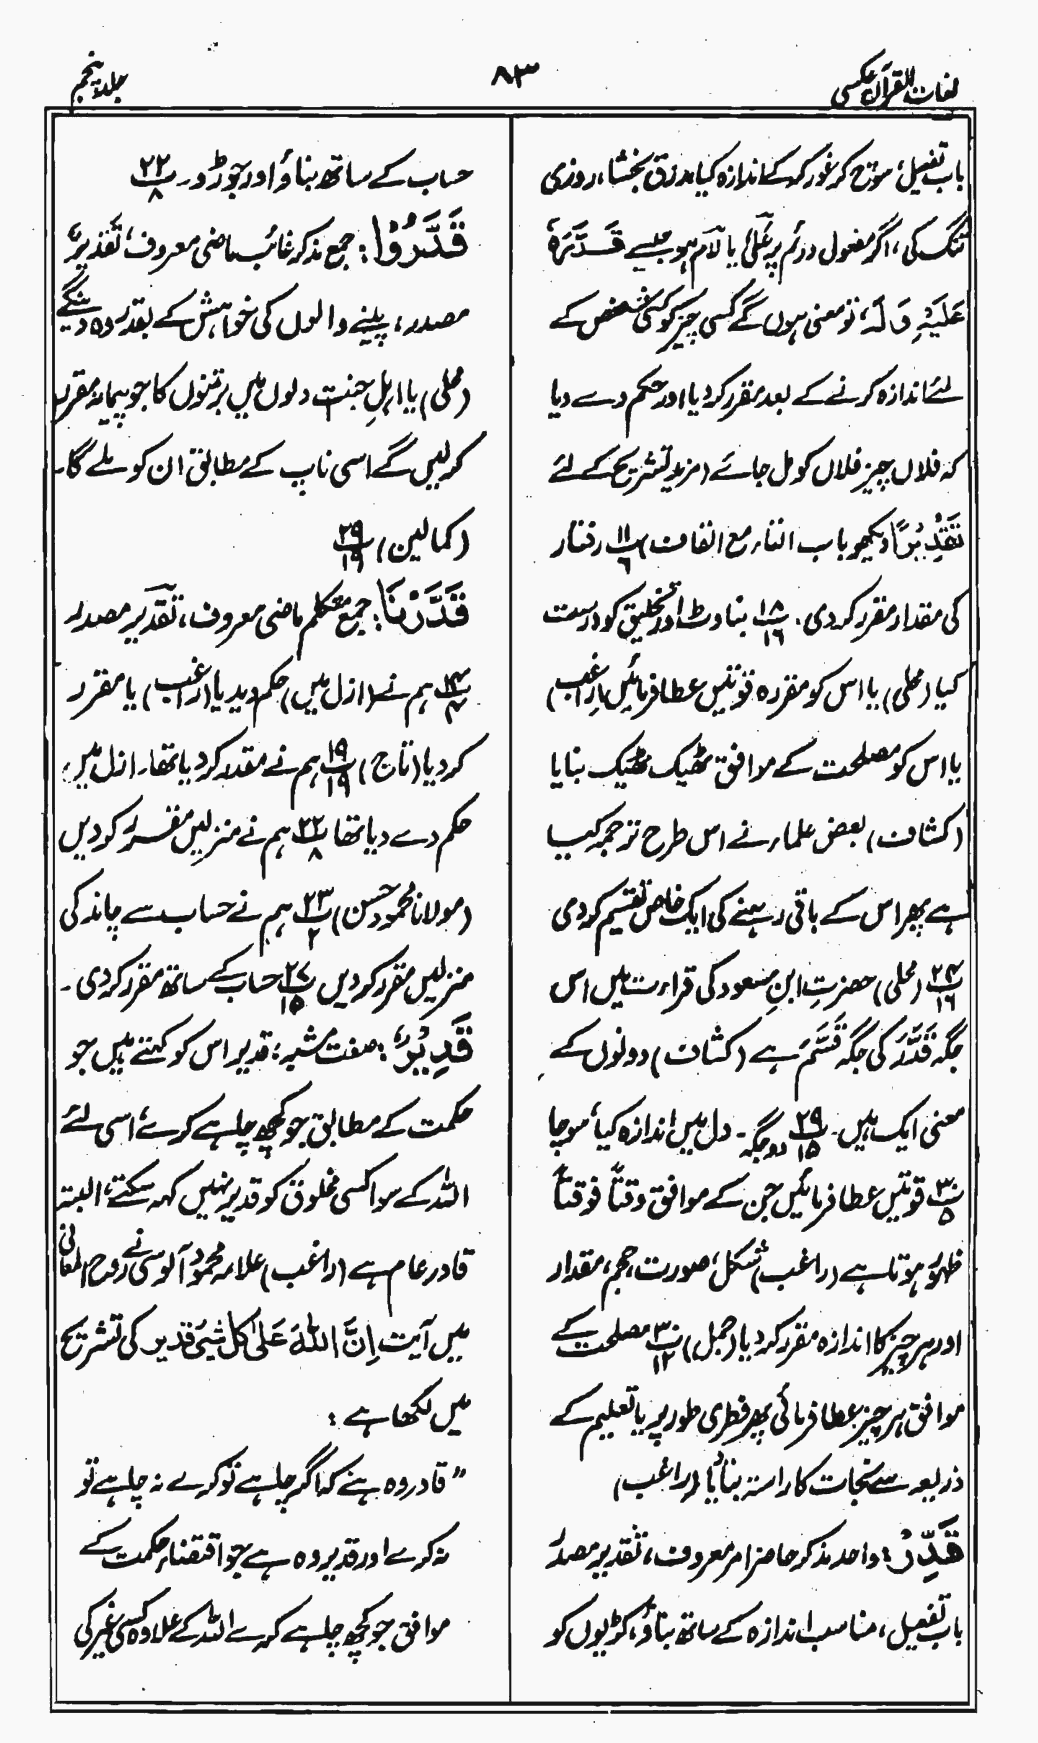 لغات القرآن عکسی
۸۳
جلد پنجم
باب تفعیل، سوچ کر غور کر کے اندازہ کیا، رزق بخشا، روزی
تنگ کی، اگر مفعول دوئم پر عَلٰی یا لام ہو جیسے قَدَّرَہٗ
عَلَیْہِ وَ لَہٗ، تو معنی ہوں گے کسی چیز کو کسی شخص کے
لئے اندازہ کرنے کے بعد مقرر کر دیا اور حکم دے دیا
کہ فلاں چیز فلاں کو مل جائے (مزید تشریح کے لئے
تَقْدِیْرًا دیکھو باب التاء مع القاف) پ۱۱/۶ رفتار
کی مقدار مقرر کر دی۔ پ۱۸/۱۶ بناوٹ اور تخلیق کو درست
کیا (محلی) یا اس کو مقررہ قوتیں عطا فرمائیں (راغب)
یا اس کو مصلحت کے موافق ٹھیک ٹھیک بنایا
(کشاف) بعض علماء نے اس طرح ترجمہ کیا
ہے پھر اس کے باقی رہنے کی ایک خاص تقسیم کر دی
پ۲۴/۱۶ (محلی) حضرت ابنِ مسعود کی قراءت میں اس
جگہ قَدَّرَ کی جگہ قَسَّمَ ہے (کشاف) دونوں کے
معنی ایک ہیں۔ پ۲۹/۱۵ دو جگہ۔ دل میں اندازہ کیا، سوچا
پ۳۰/۵ قوتیں عطا فرمائیں جن کے موافق وقتاً فوقتاً
ظہور ہوتا ہے (راغب) شکل، صورت، حجم، مقدار
اور ہر چیز کا اندازہ مقرر کر دیا (جمل) پ۳۰/۱۲ مصلحت کے
موافق ہر چیز عطا فرمائی پھر فطری طور پر یا تعلیم کے
ذریعہ سے نجات کا راستہ بتایا (راغب)
قَدِّرْ: واحد مذکر حاضر امر معروف، تقدیر مصدر
باب تفعیل، مناسب اندازہ کے ساتھ بناؤ، کڑیوں کو
حساب کے ساتھ بناؤ اور جوڑو۔ پ۲۲/۸
قَدَّرُوْا: جمع مذکر غائب ماضی معروف، تقدیرٌ
مصدر، پینے والوں کی خواہش کے بقدر وہ دینگے
(محلی) یا اہلِ جنت دلوں میں برتنوں کا جو پیمانہ مقرر
کر لیں گے اسی ناپ کے مطابق ان کو ملے گا۔
(کمالین) پ۲۹/۱۹
قَدَّرْنَا: جمع متکلم ماضی معروف، تقدیر مصدر
پ۱۴/۴ ہم نے (ازل میں) حکم دیدیا (راغب) یا مقرر
کر دیا (تاج) پ۱۹/۱۹ ہم نے مقدر کر دیا تھا۔ ازل میں
حکم دے دیا تھا پ۲۲/۸ ہم نے منزلیں مقرر کر دیں
(مولانا محمود حسن) پ۲۳/۲ ہم نے حساب سے چاند کی
منزلیں مقرر کر دیں پ۲۷/۱۵ حساب کے ساتھ مقرر کر دی۔
قَدِیْرٌ: صفت مشبہ، قدیر اس کو کہتے ہیں جو
حکمت کے مطابق جو کچھ چاہے کرے، اسی لئے
اللہ کے سوا کسی مخلوق کو قدیر نہیں کہہ سکتے، البتہ
قادر عام ہے (راغب) علامہ محمود آلوسی نے روح المعانی
میں آیت اِنَّ اللّٰہَ عَلٰی کل شیٔ قدیر کی تشریح
میں لکھا ہے:
”قادر وہ ہے کہ اگر چاہے تو کرے نہ چاہے تو
نہ کرے اور قدیر وہ ہے جو اقتضاء حکمت کے
موافق جو کچھ چاہے کرے اللہ کے علاوہ کسی غیر کی